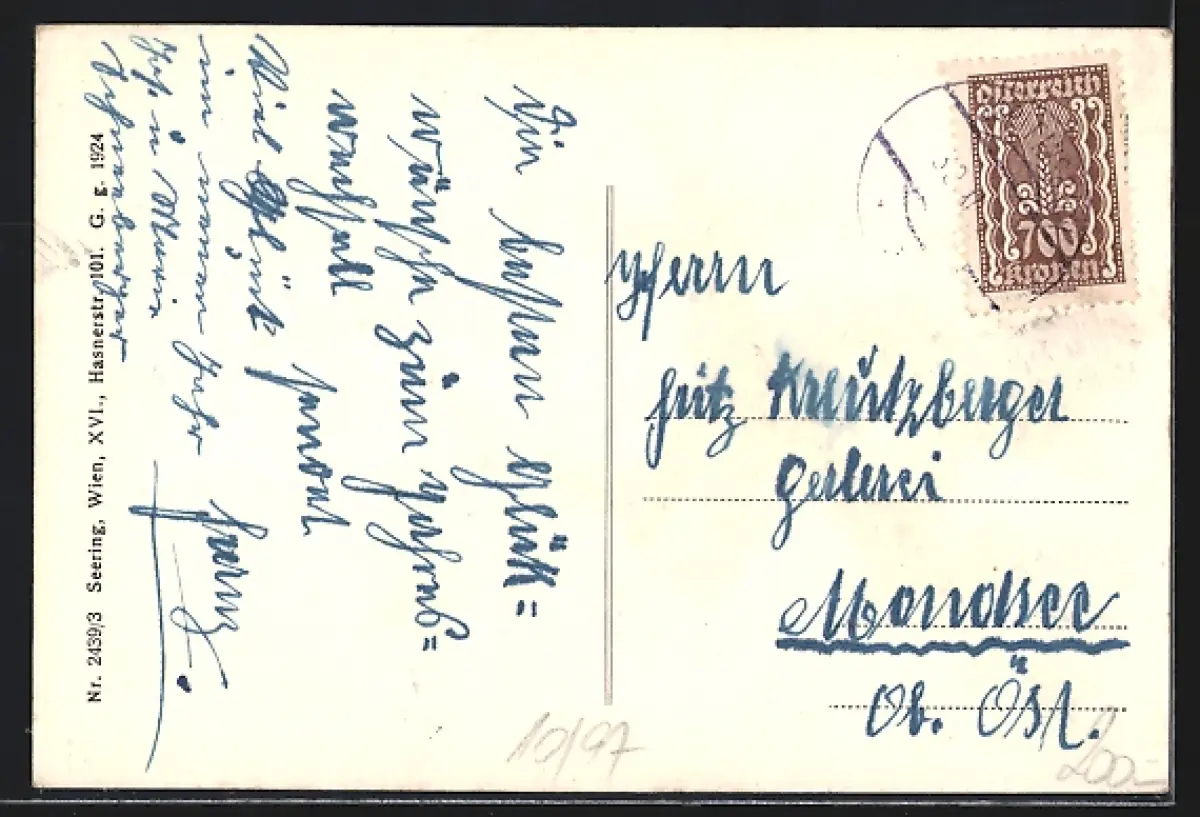 Die besten Glück=
wünsche zum Jahres=
wechsel
sendet
Viel Glück
im neuen Jahr
Franz
Nr. 2439/3 Seering, Wien, XVI., Hasnerstr. 101. G. g. 1924
Österreich
700
Kronen
Herrn
Fritz Kreutzberger
Gerberei
Mondsee
Ob. Öst.
10/97
200.-